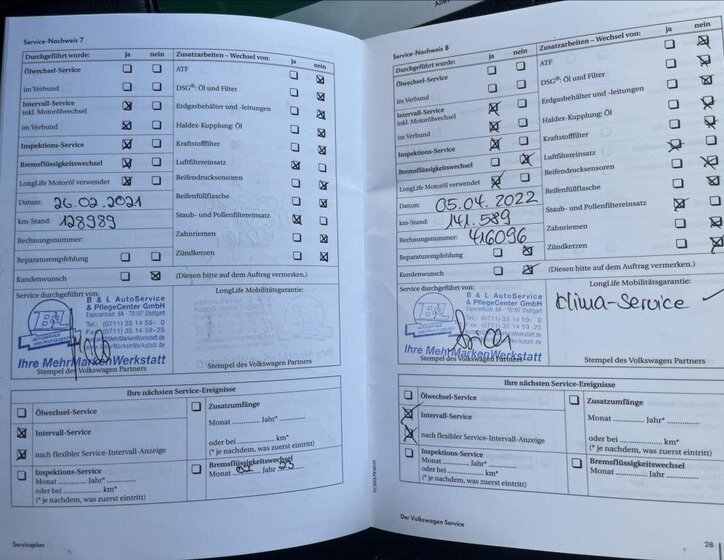 Service-Nachweis 7
Durchgeführt wurde: ja nein
Ölwechsel-Service
im Verbund
Intervall-Service
inkl. Motorölwechsel
im Verbund
Inspektions-Service
Bremsflüssigkeitswechsel
LongLife Motoröl verwendet
Datum: 26.02.2021
km-Stand: 128989
Rechnungsnummer:
Reparaturempfehlung
Kundenwunsch
Zusatzarbeiten – Wechsel von: ja nein
ATF
DSG®: Öl und Filter
Erdgasbehälter und -leitungen
Haldex-Kupplung: Öl
Kraftstofffilter
Luftfiltereinsatz
Reifendrucksensoren
Reifenfüllflasche
Staub- und Pollenfiltereinsatz
Zahnriemen
Zündkerzen
(Diesen bitte auf dem Auftrag vermerken.)
Service durchgeführt von:
B & L AutoService
& PflegeCenter GmbH
Esperantostr. 8A - 70197 Stuttgart
Tel.: (0711) 35 14 59- 0
Fax: (0711) 35 14 59-25
Ihre MehrMarkenWerkstatt
Stempel des Volkswagen Partners
LongLife Mobilitätsgarantie:
Stempel des Volkswagen Partners
Ihre nächsten Service-Ereignisse
Ölwechsel-Service
Intervall-Service
nach flexibler Service-Intervall-Anzeige
Inspektions-Service
Monat Jahr*
oder bei km*
(* je nachdem, was zuerst eintritt)
Zusatzumfänge
Monat Jahr*
oder bei km*
(* je nachdem, was zuerst eintritt)
Bremsflüssigkeitswechsel
Monat 02 Jahr 23
Serviceplan
Service-Nachweis 8
Durchgeführt wurde: ja nein
Ölwechsel-Service
im Verbund
Intervall-Service
inkl. Motorölwechsel
im Verbund
Inspektions-Service
Bremsflüssigkeitswechsel
LongLife Motoröl verwendet
Datum: 05.04.2022
km-Stand: 141.589
Rechnungsnummer: 416096
Reparaturempfehlung
Kundenwunsch
Zusatzarbeiten – Wechsel von: ja nein
ATF
DSG®: Öl und Filter
Erdgasbehälter und -leitungen
Haldex-Kupplung: Öl
Kraftstofffilter
Luftfiltereinsatz
Reifendrucksensoren
Reifenfüllflasche
Staub- und Pollenfiltereinsatz
Zahnriemen
Zündkerzen
(Diesen bitte auf dem Auftrag vermerken.)
Service durchgeführt von:
B & L AutoService
& PflegeCenter GmbH
Esperantostr. 8A - 70197 Stuttgart
Tel.: (0711) 35 14 59- 0
Fax: (0711) 35 14 59-25
Ihre MehrMarkenWerkstatt
Stempel des Volkswagen Partners
LongLife Mobilitätsgarantie:
Klima-Service ✓
Stempel des Volkswagen Partners
Ihre nächsten Service-Ereignisse
Ölwechsel-Service
Intervall-Service
nach flexibler Service-Intervall-Anzeige
Inspektions-Service
Monat Jahr*
oder bei km*
(* je nachdem, was zuerst eintritt)
Zusatzumfänge
Monat Jahr*
oder bei km*
(* je nachdem, was zuerst eintritt)
Bremsflüssigkeitswechsel
Monat Jahr
Der Volkswagen Service
28